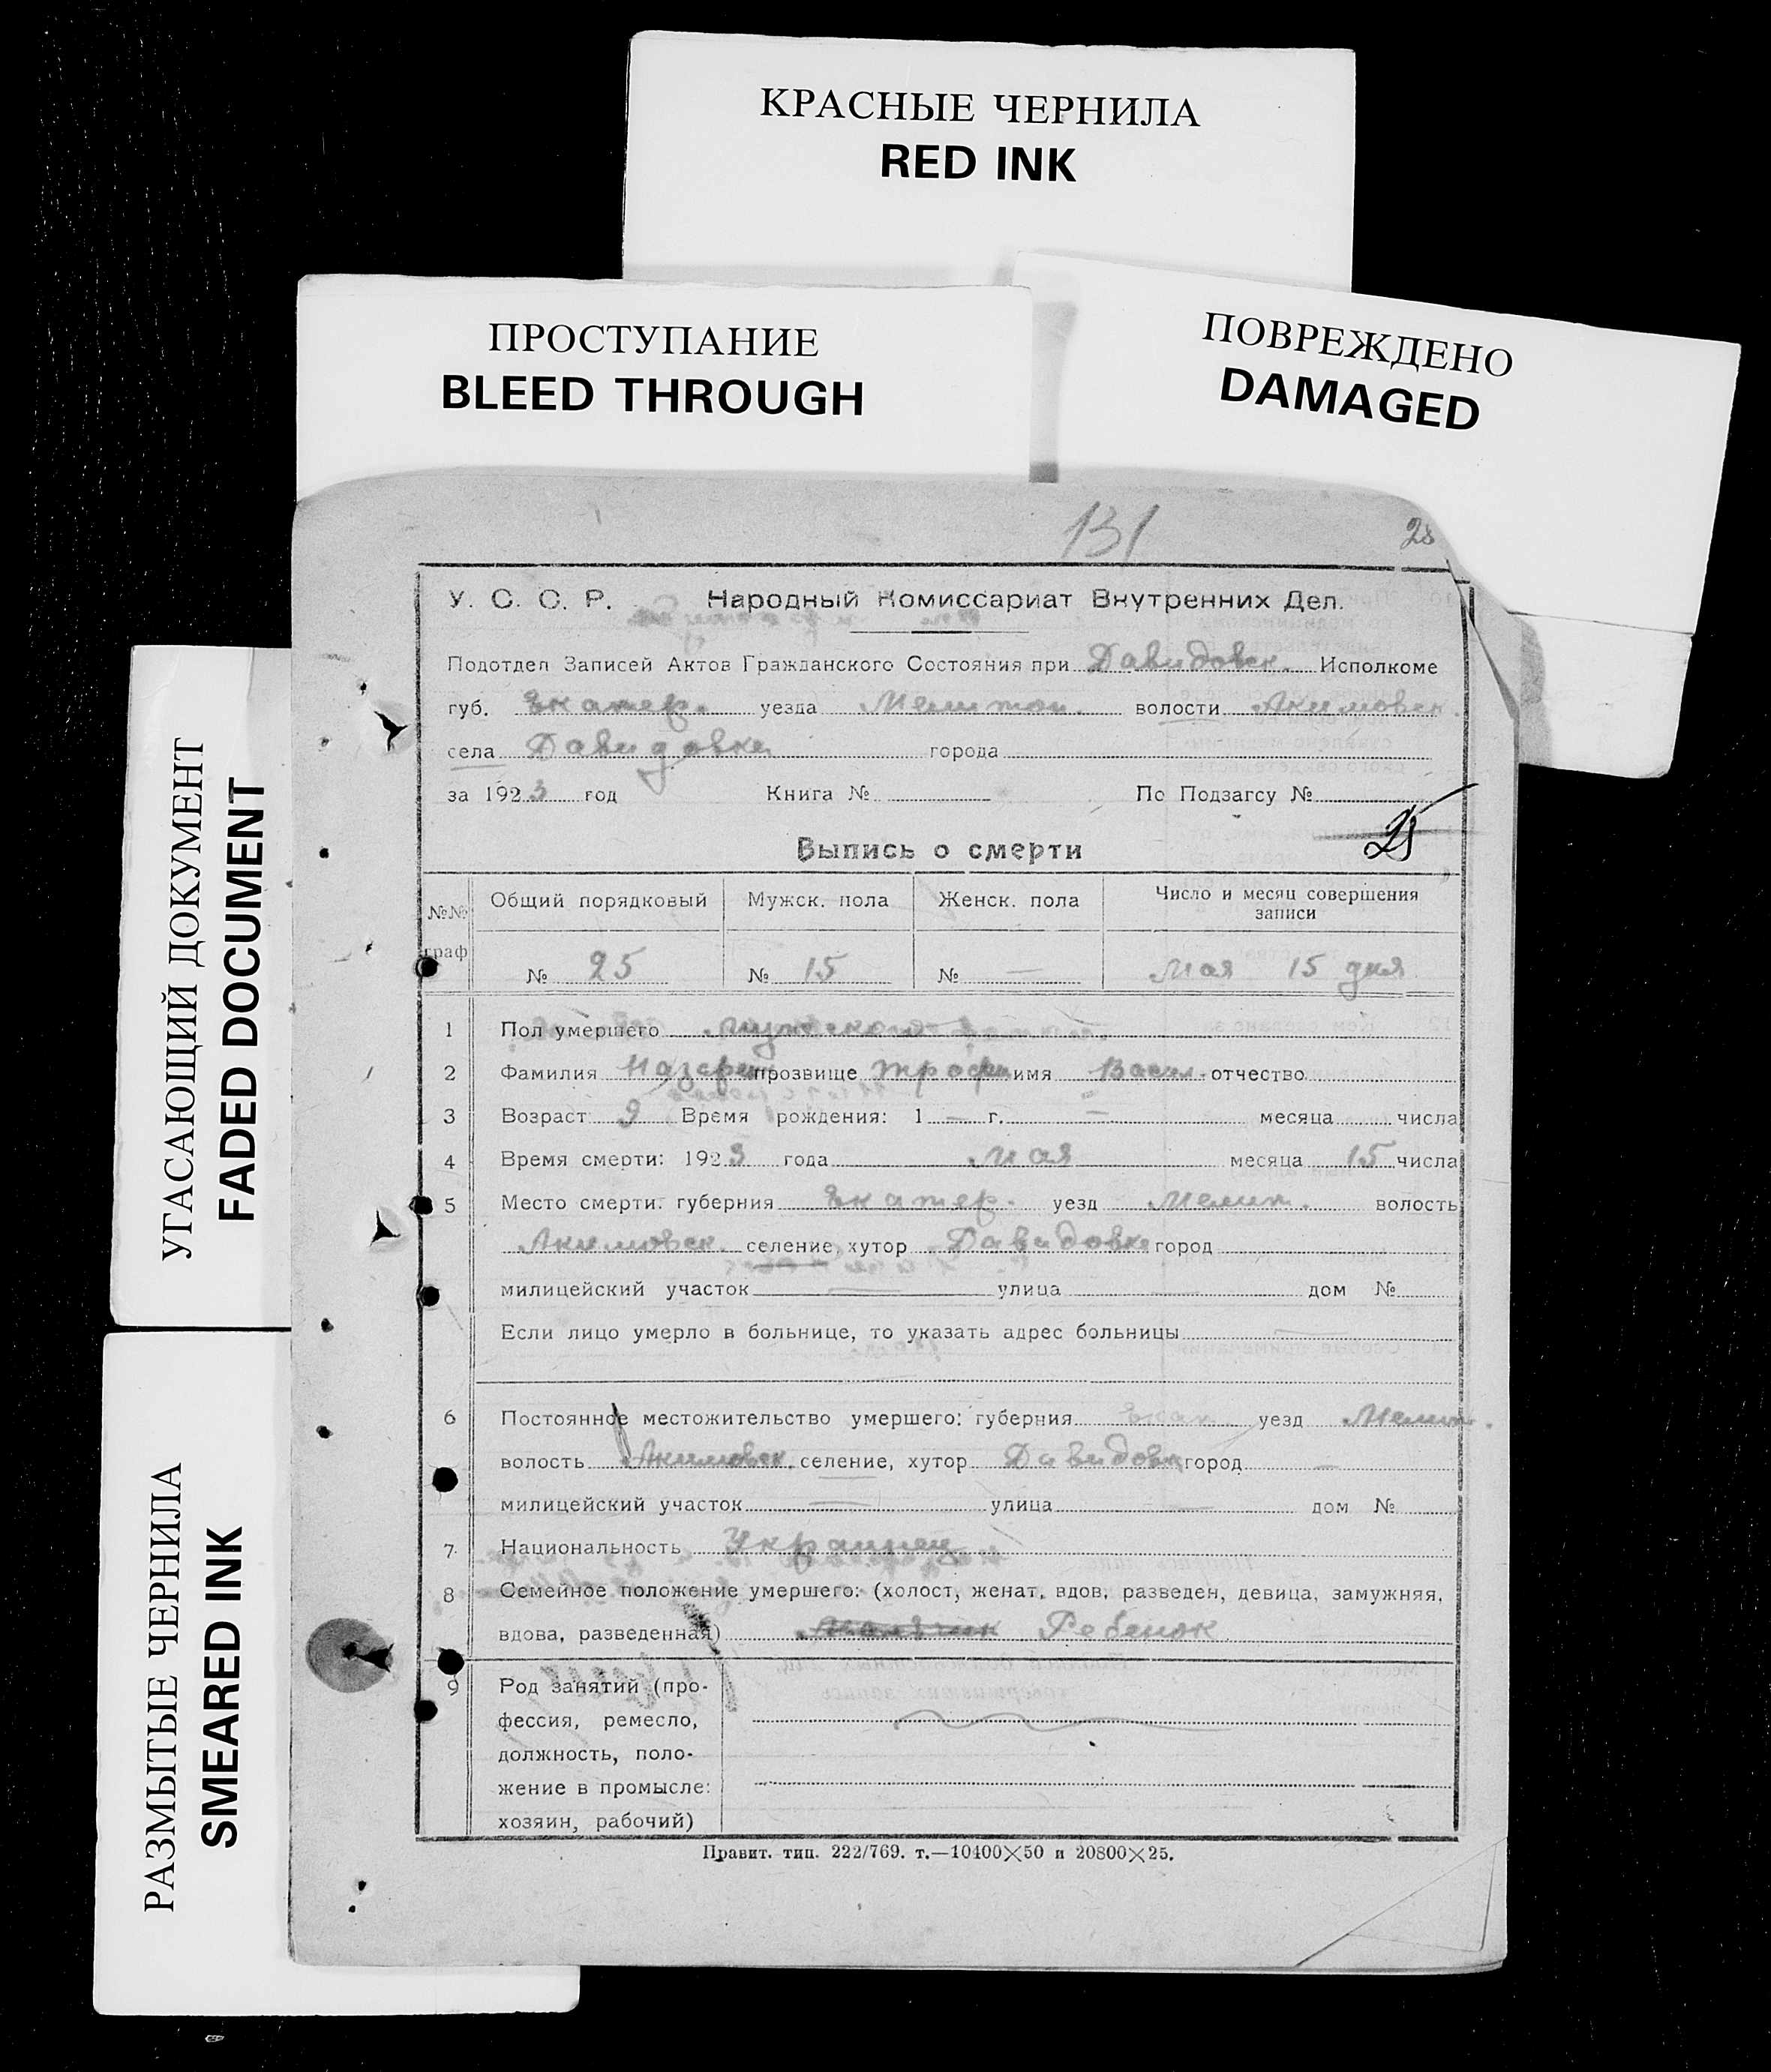 КРАСНЫЕ ЧЕРНИЛА
RED INK
ПРОСТУПАНИЕ
BLEED THROUGH
ПОВРЕЖДЕНО
DAMAGED
УГАСАЮЩИЙ ДОКУМЕНТ
FADED DOCUMENT
РАЗМЫТЫЕ ЧЕРНИЛА
SMEARED INK
131
У. С. С. Р. Народный Комиссариат Внутренних Дел.
Подотдел Записей Актов Гражданского Состояния при Давидовск. Исполкоме
губ. Екатер. уезда Мелитоп. волости Акимовск.
села Давидовка города
за 1923 год Книга № По Подзагсу №
25
Выпись о смерти
№№ граф Общий порядковый Мужск. пола Женск. пола Число и месяц совершения записи
№ 25 № 15 № — Мая 15 дня
1 Пол умершего мужского
2 Фамилия прозвище Трофим имя Васил. отчество
3 Возраст 2 Время рождения: 1 — г. — месяца числа
4 Время смерти: 1923 года Мая месяца 15 числа
5 Место смерти: губерния Екатер. уезд Мелит. волость
Акимовск. селение, хутор Давидовка город
милицейский участок — улица — дом №
Если лицо умерло в больнице, то указать адрес больницы —
6 Постоянное местожительство умершего: губерния Екат уезд Мелит.
волость Акимовск. селение, хутор Давидовка город —
милицейский участок — улица — дом №
7 Национальность Украинец
8 Семейное положение умершего: (холост, женат, вдов, разведен, девица, замужняя,
вдова, разведенная) Ребенок
9 Род занятий (про-
фессия, ремесло,
должность, поло-
жение в промысле:
хозяин, рабочий)
Правит. тип. 222/769. т.—10400×50 и 20800×25.